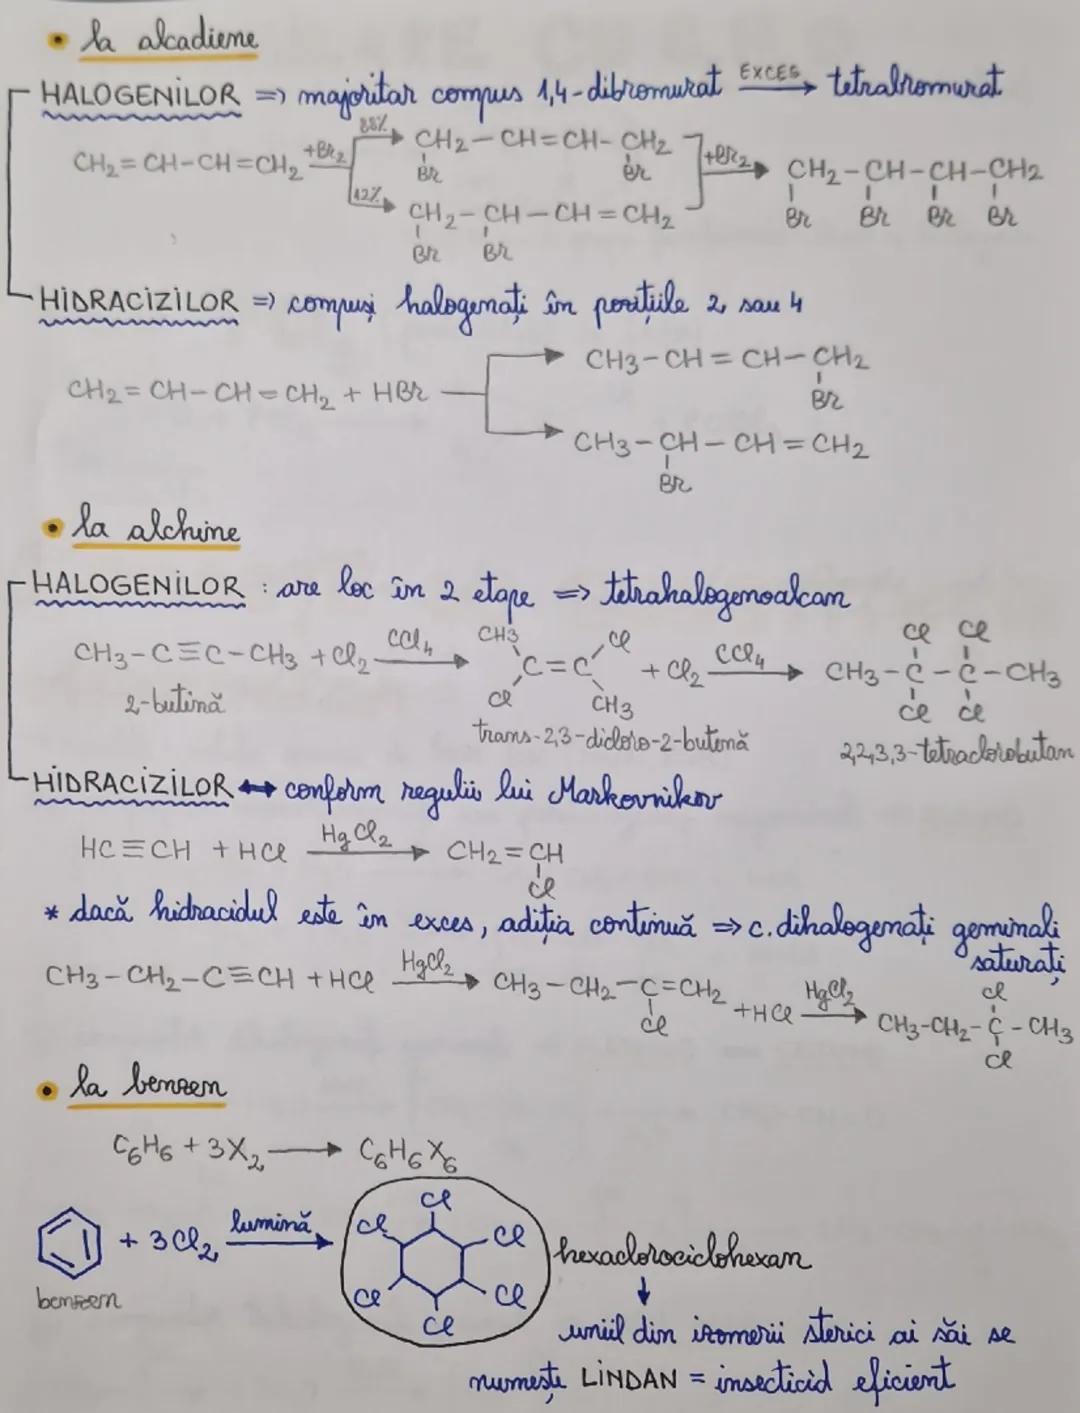 • la alcadiene
HALOGENILOR => majoritar compus 1,4-dibromurat EXCES → tetrabromurat
88% CH2-CH=CH-CH2
CH2=CH-CH=CH2 +Br2 Br Br +Br2 → CH2-CH-CH-CH2
12% CH2-CH-CH=CH2 Br Br Br Br
Br Br
HIDRACIZILOR => compuși halogenați în pozițiile 2 sau 4
CH3-CH=CH-CH2
CH2=CH-CH=CH2 + HBr Br
CH3-CH-CH=CH2
Br
• la alchine
HALOGENILOR : are loc în 2 etape => tetrahalogenoalcan
CH3 Cl Cl Cl
CH3-C≡C-CH3 + Cl2 CCl4 → C=C + Cl2 CCl4 → CH3-C-C-CH3
2-butină Cl CH3 Cl Cl
trans-2,3-dicloro-2-butenă 2,2,3,3-tetraclorobutan
HIDRACIZILOR ↔ conform regulii lui Markovnikov
HC≡CH + HCl HgCl2 → CH2=CH
Cl
* dacă hidracidul este în exces, adiția continuă => c. dihalogenați geminali
saturați
CH3-CH2-C≡CH + HCl HgCl2 → CH3-CH2-C=CH2 +HCl HgCl2 → Cl
Cl CH3-CH2-C-CH3
Cl
• la benzen
C6H6 + 3X2 → C6H6X6
Cl
+ 3Cl2 lumină → Cl Cl hexaclorociclohexan
benzen Cl Cl ↓
Cl unul din izomerii sterici ai săi se
numește LINDAN = insecticid eficient